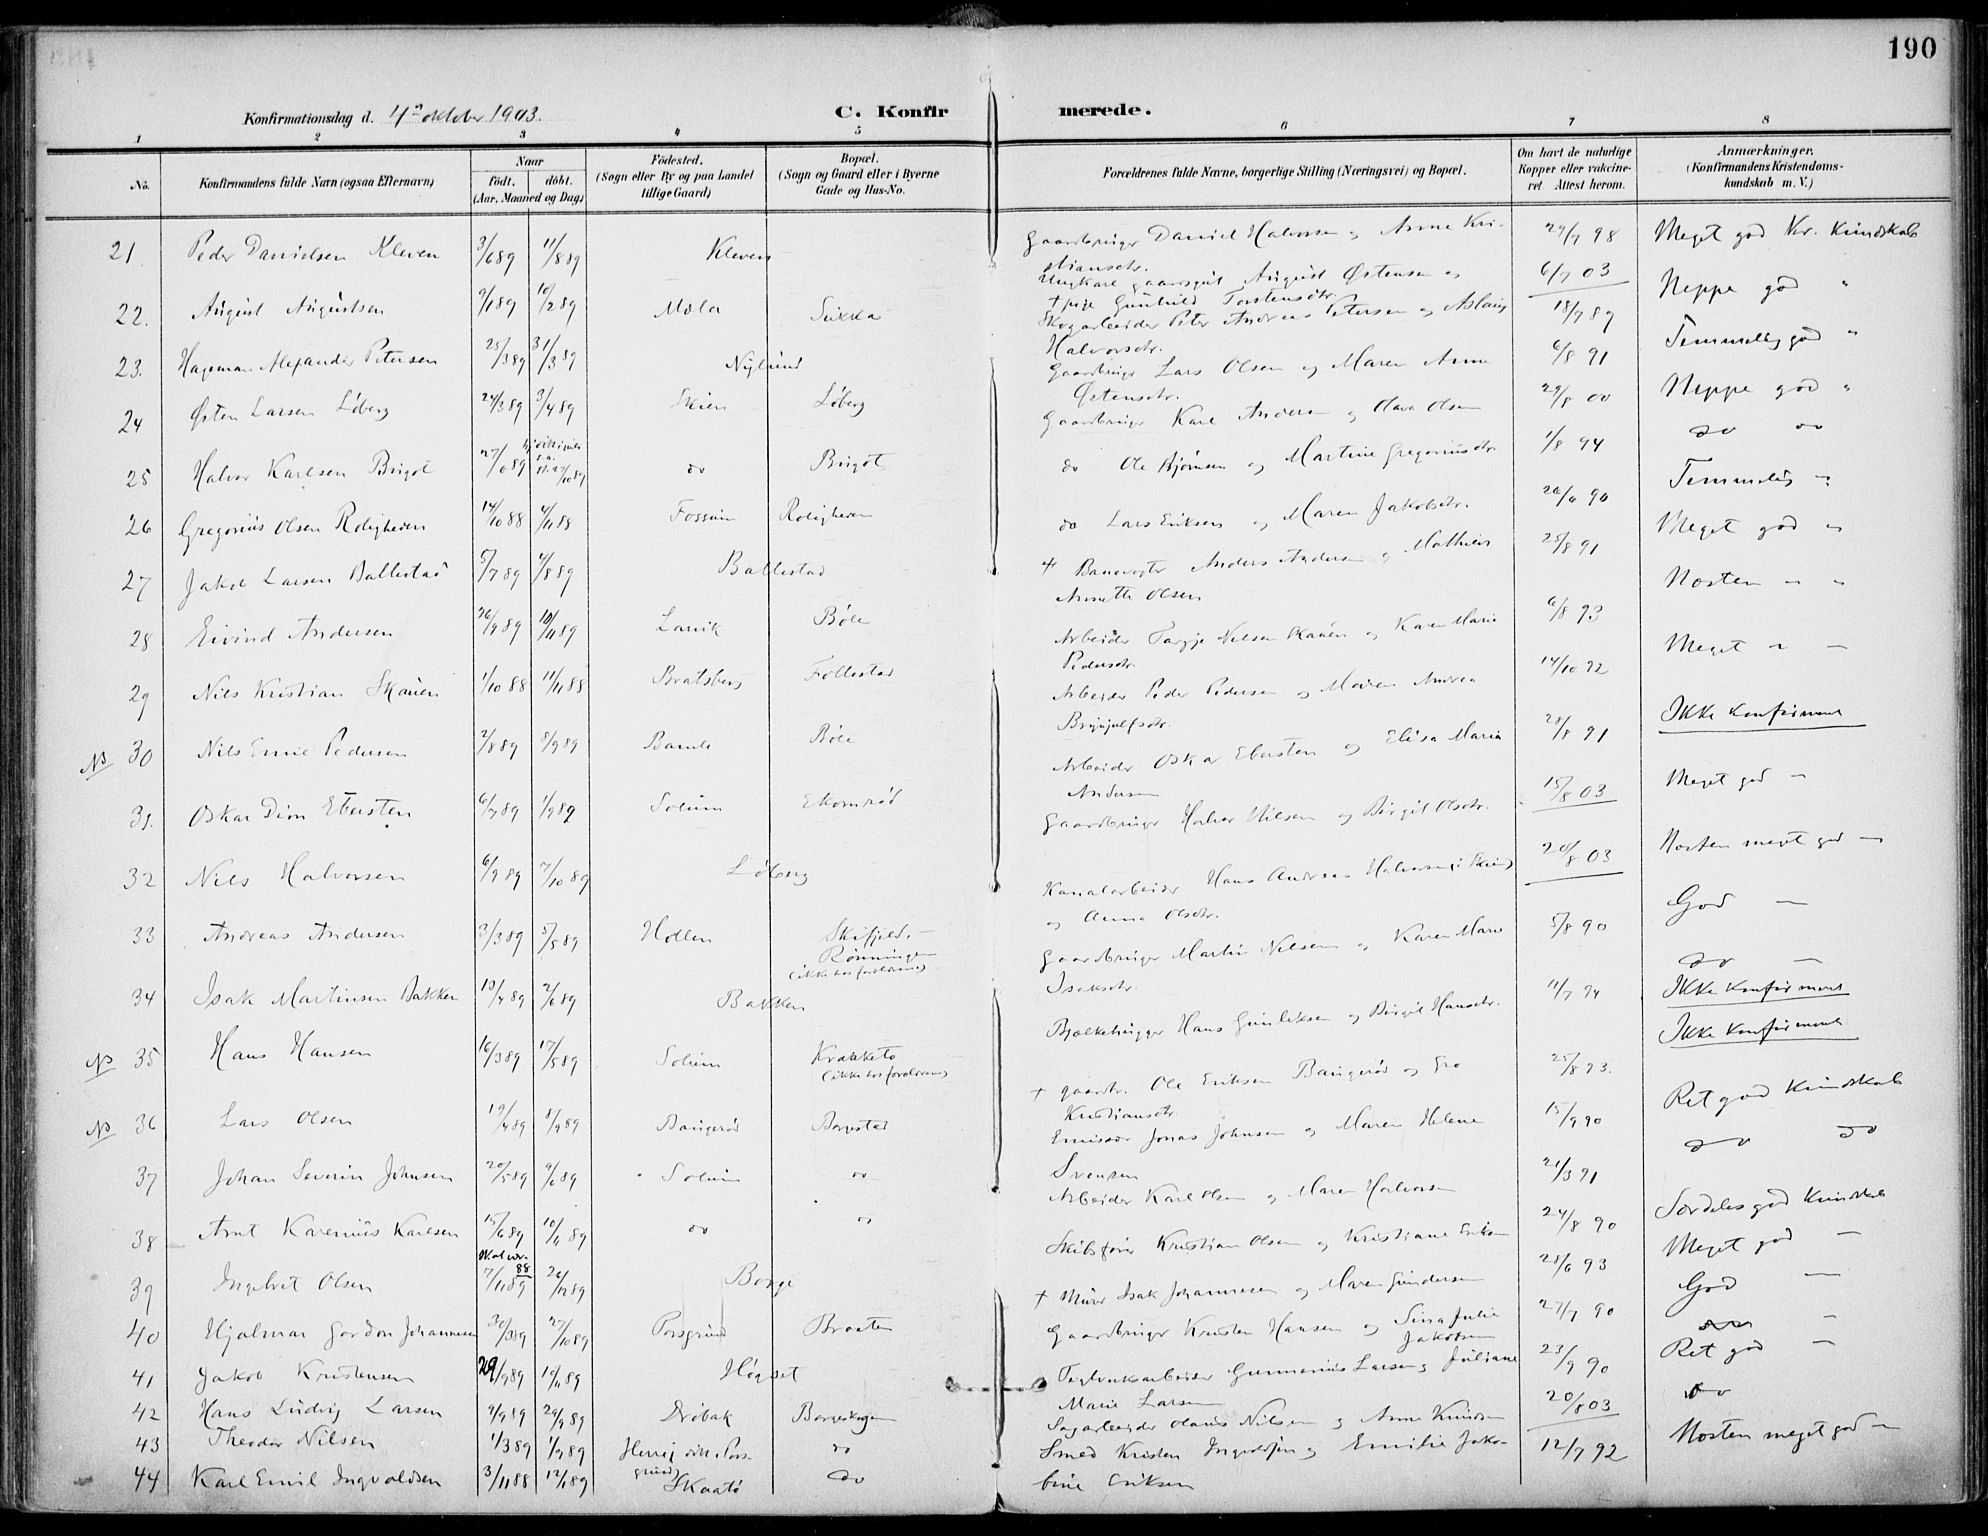 190
Konfirmationsdag d. 4de oktober 1903.
C. Konfirmerede.
1 2 3 4 5 6 7 8
No.
Konfirmandens fulde Navn (ogsaa Efternavn)
Naar
födt. döbt.
(Aar, Maaned og Dag)
Födested.
(Sogn eller By og paa Landet
tillige Gaard)
Bopæl.
(Sogn og Gaard eller i Byerne
Gade og Hus-No.
Forældrenes fulde Navne, borgerlige Stilling (Næringsvei) og Bopæl.
Om havt de naturlige
Kopper eller vakcineret
Attest herom.
Anmærkninger.
(Konfirmandens Kristendomskundskab
m. V.)
21. Peder Danielsen Kleven 3/6 89 11/8 89 Kleven Gaardbruger Daniel Halvorsen og Anne Kristiansdtr. 29/7 98 Meget god Kr. Kundskab
22. August Augustsen 9/1 89 10/2 89 Mæla Ungkarl gaardsgut August Østensen og pige Gunhild Torstensdtr. 6/7 03 Neppe god "
23. Hagemar Alexander Petersen 25/3 89 31/3 89 Nylund Skogarbeider Peter Andreas Petersen og Aslaug Halvorsdtr. 18/7 89 Temmelig god "
24 Østen Larsen Løberg 24/3 89 3/4 89 Skien Løberg Gaardbruger Lars Olsen og Maren Anne Østensdtr. 6/8 91 Neppe god "
25 Halvor Karlsen Brigot 27/6 89 /10 89 do Brigot Gaardbruger Karl Andersen og Olava Olsen 29/8 00 do do
26 Gregorius Olsen Roligheden 14/10 88 4/11 88 Fossum Roligheden do Ole Bjørnsen og Martine Gregoriusdtr. 1/8 94 Temmelig "
27 Jakob Larsen Ballestad 5/7 89 4/8 89 Ballestad do Lars Eriksen og Maren Jakobsdtr. 20/6 90 Meget god "
28 Eivind Andersen 26/9 89 10/11 89 Larvik Bøle + Banevogter Anders Andersen og Mathea Annette Olsen 25/8 91 Næsten " "
29 Nils Kristian Skauen 1/10 88 11/11 88 Bratsberg Follestad Arbeider Targje Nilsen Skauen og Karen Marie Pedersdtr. 6/8 93 Meget " –
NB 30 Nils Emil Pedersen 2/8 89 8/9 89 Bamle Bøle Arbeider Peder Pedersen og Maren Andrea Brynjulfsdtr. 14/10 92 Ikke konfirmeret
31. Oskar Dion Ebersten 6/7 89 1/9 89 Solum Ekornrød Arbeider Oskar Ebersten og Elisa Maria Andersen 28/8 91 Meget god –
32 Nils Halvorsen 6/9 89 7/10 89 Løberg Gaardbruger Halvor Nilsen og Birgit Olsdtr. 15/8 03 Næsten meget god –
33 Andreas Andersen 3/3 89 5/5 89 Hollen Skifjeld, Rønningen (ikke hos forældrene) Kanalarbeider Hans Andreas Halvorsen (i Skien) og Anna Olsdtr. 20/8 03 God –
34 Isak Martinsen Bakken 13/4 89 2/6 89 Bakken Gaardbruger Martin Nilsen og Karen Marie Isaksdtr. 5/8 90 do –
NB 35 Hans Hansen 16/3 89 17/5 89 Solum Krabketo (ikke hos forældrene) Bjælkehugger Hans Gunleksen og Birgit Hansdtr. 11/7 94 Ikke konfirmeret
NB 36 Lars Olsen 19/4 89 8/9 89 Baugerød Borgestad + gaardbr. Ole Eriksen Baugerød og Gro Kristiansdtr. 25/8 93. Ikke konfirmeret
37 Johan Severin Johnsen 20/5 89 9/6 89 Solum do Emissær Jonas Johnsen og Maren Helene Svensen 15/9 90 Ret god Kundskab
38 Arnt Karenius Karlsen 15/6 89 10/11 89 do do Arbeider Karl Olsen og Maren Halvorsen 21/3 91 do do
39 Ingebret Olsen 7/11 89 skal være 88 26/12 89 Borge Skibsfører Kristian Olsen og Kristiane Eriksen 24/8 90 Særdeles god Kundskab
40 Hjalmar Gordon Johannesen 30/3 89 27/10 89 Porsgrund Braaten + Murer Isak Johannesen og Maren Gundersen 28/6 93 Meget god –
41 Jakob Kristensen 29/9 89 10/11 89 Høgset Gaardbruger Kristen Hansen og Sina Julie Jakobsen 27/7 90 God –
42 Hans Ludvig Larsen 4/9 89 29/9 89 Drøbak Borgeskogen Teglverksarbeider Gunnerius Larsen og Juliane Marie Larsen 23/9 90 Ret god –
43 Theodor Nilsen 1/3 89 1/9 89 Herrej distr. Porsgrund do Sagarbeider Olaus Nilsen og Anne Knudsen 20/8 03 do
44 Karl Emil Ingvaldsen 3/11 88 12/1 89 Skaatø do Smed Kristen Ingvaldsen og Emilie Jakobine Eriksen 12/7 92 Næsten meget god –